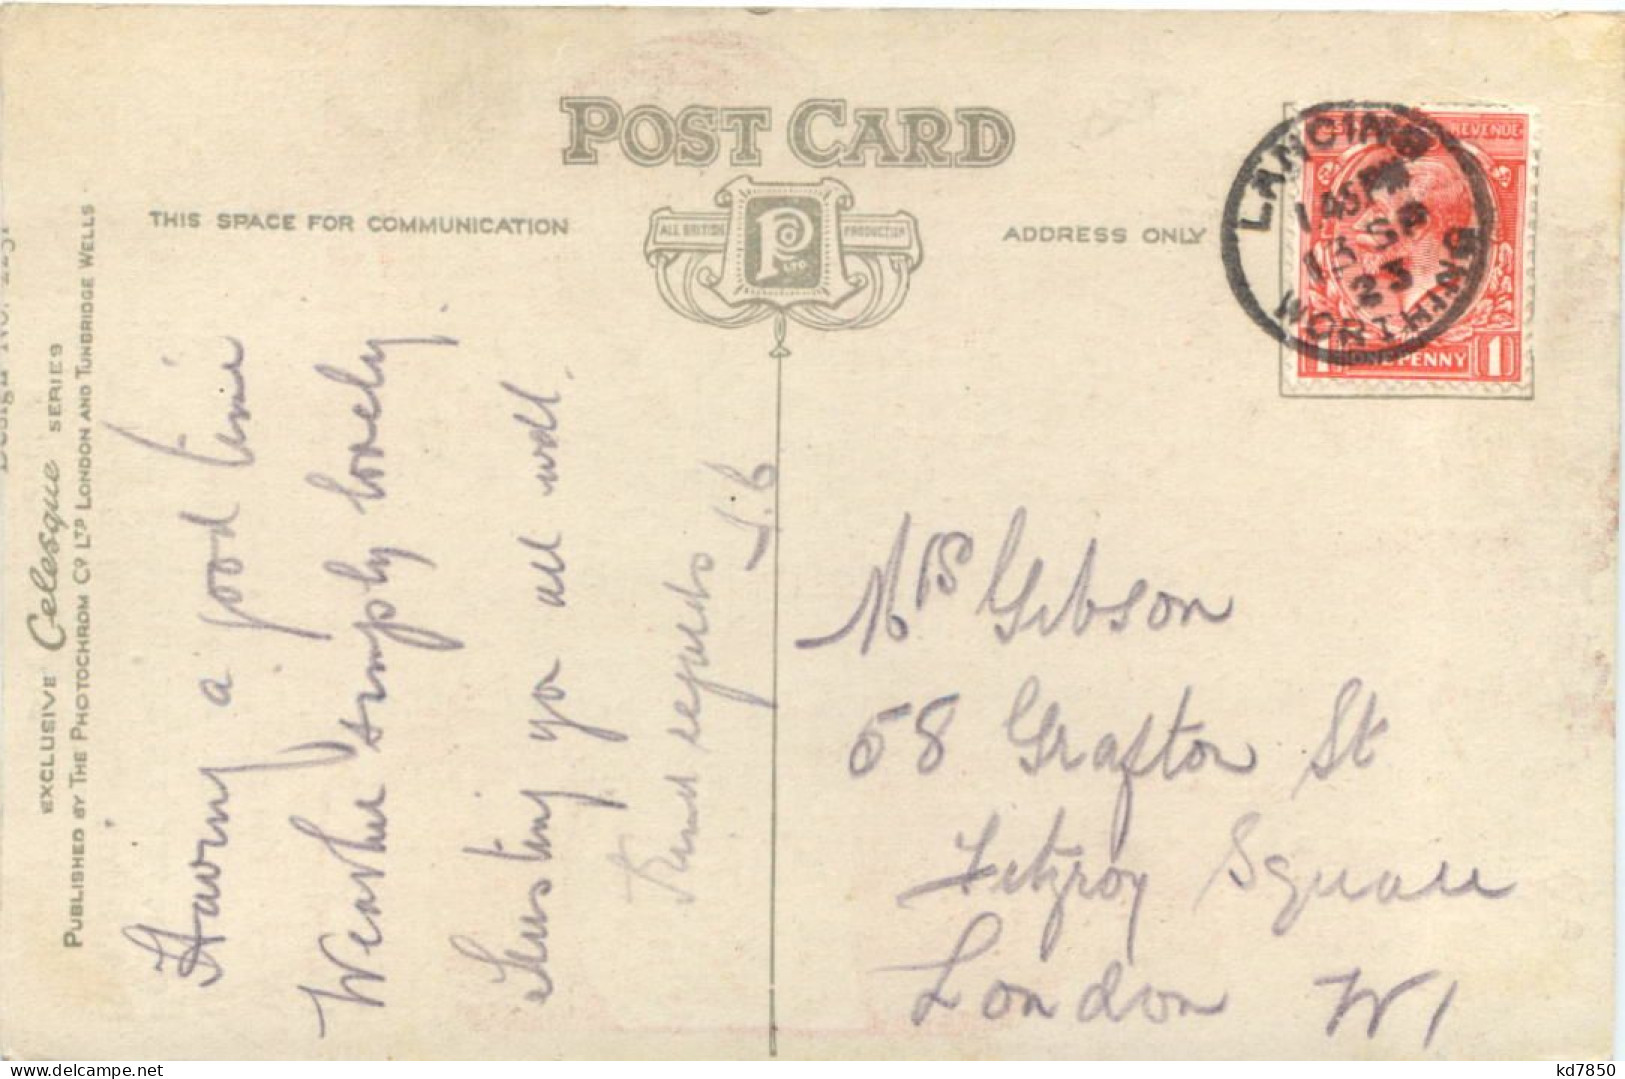 POST CARD
THIS SPACE FOR COMMUNICATION
ALL BRITISH PRODUCTION
P
ADDRESS ONLY
LANCING
1.45PM
13 SP
23
WORTHING
REVENUE
1 ONE PENNY 1
EXCLUSIVE Celesque SERIES
PUBLISHED BY THE PHOTOCHROM CO. LTD LONDON AND TUNBRIDGE WELLS
Having a good time
Weather simply lovely.
Trusting you are all well.
Kind regards
Mrs Gibson
58 Grafton St
Fitzroy Square
London W1
kd7850